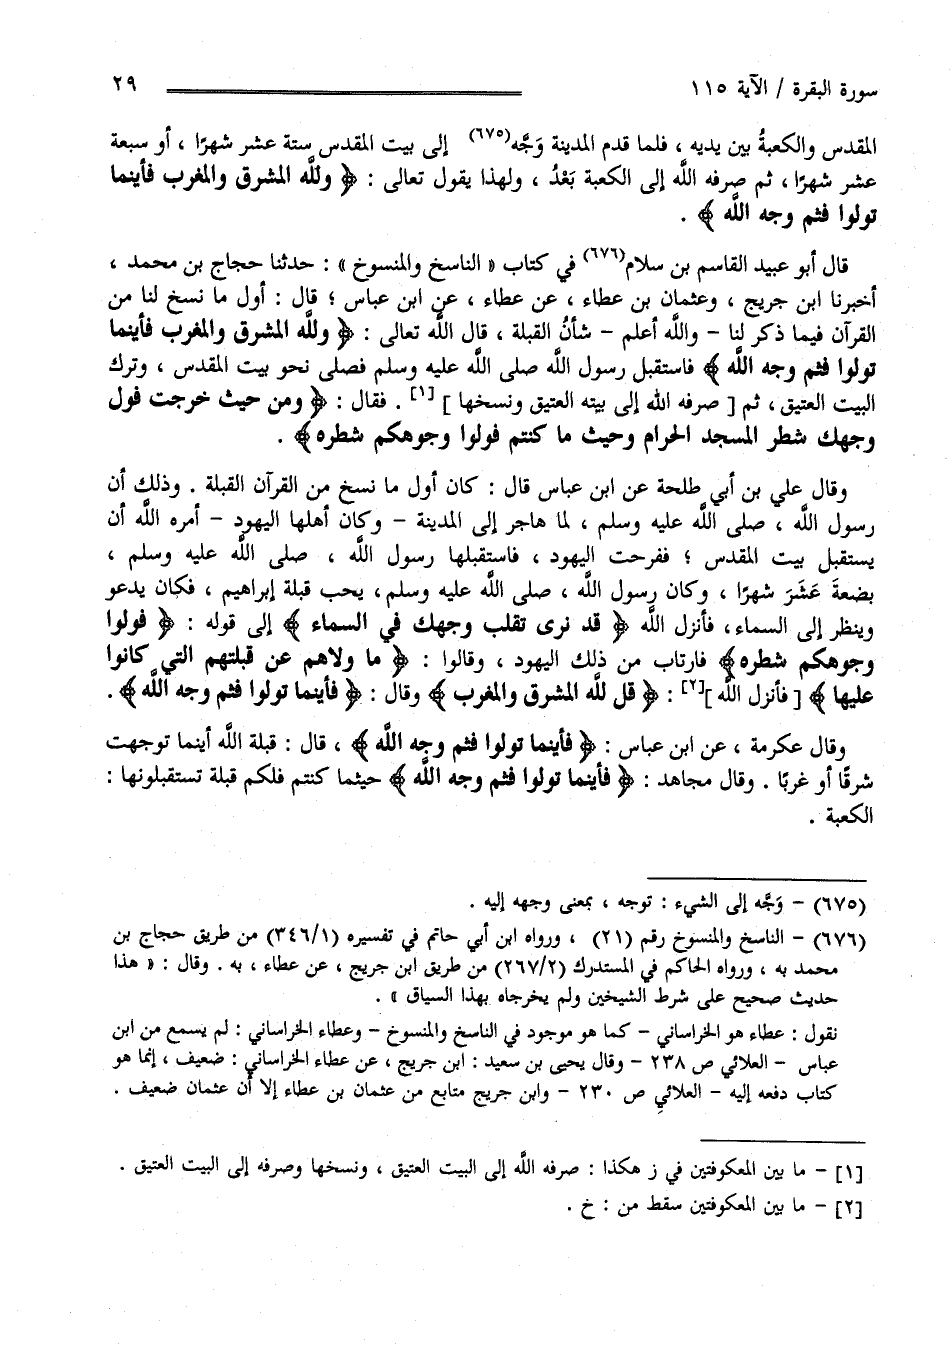 سورة البقرة / الآية ١١٥
٢٩
المقدس والكعبةُ بين يديه ، فلما قدم المدينة وَجَّه(٦٧٥) إلى بيت المقدس ستة عشر شهرًا ، أو سبعة
عشر شهرًا ، ثم صرفه اللَّه إلى الكعبة بَعْدُ ، ولهذا يقول تعالى : ﴿ وللَّه المشرق والمغرب فأينما
تولوا فثم وجه اللَّه ﴾ .
قال أبو عبيد القاسم بن سلام(٦٧٦) في كتاب « الناسخ والمنسوخ » : حدثنا حجاج بن محمد ،
أخبرنا ابن جريج ، وعثمان بن عطاء ، عن عطاء ، عن ابن عباس ؛ قال : أول ما نسخ لنا من
القرآن فيما ذكر لنا - واللَّه أعلم - شأنُ القبلة ، قال اللَّه تعالى : ﴿ وللَّه المشرق والمغرب فأينما
تولوا فثم وجه اللَّه ﴾ فاستقبل رسول اللَّه صلى اللَّه عليه وسلم فصلى نحو بيت المقدس ، وترك
البيت العتيق ، ثم [ صرفه الله إلى بيته العتيق ونسخها ][١] . فقال : ﴿ ومن حيث خرجت فول
وجهك شطر المسجد الحرام وحيث ما كنتم فولوا وجوهكم شطره ﴾ .
وقال علي بن أبي طلحة عن ابن عباس قال : كان أول ما نسخ من القرآن القبلة . وذلك أن
رسول اللَّه ، صلى اللَّه عليه وسلم ، لما هاجر إلى المدينة - وكان أهلها اليهود - أمره اللَّه أن
يستقبل بيت المقدس ؛ ففرحت اليهود ، فاستقبلها رسول اللَّه ، صلى اللَّه عليه وسلم ،
بضعةَ عَشَرَ شهرًا ، وكان رسول اللَّه ، صلى اللَّه عليه وسلم، يحب قبلة إبراهيم ، فكان يدعو
وينظر إلى السماء، فأنزل اللَّه ﴿ قد نرى تقلب وجهك في السماء ﴾ إلى قوله : ﴿ فولوا
وجوهكم شطره﴾ فارتاب من ذلك اليهود ، وقالوا : ﴿ ما ولاهم عن قبلتهم التي كانوا
عليها ﴾ [ فأنزل اللَّه ][٢] : ﴿ قل للَّه المشرق والمغرب ﴾ وقال : ﴿ فأينما تولوا فثم وجه اللَّه﴾ .
وقال عكرمة ، عن ابن عباس : ﴿ فأينما تولوا فثم وجه اللَّه ﴾ ، قال : قبلة اللَّه أينما توجهت
شرقًا أو غربًا . وقال مجاهد : ﴿ فأينما تولوا فثم وجه اللَّه ﴾ حيثما كنتم فلكم قبلة تستقبلونها :
الكعبة .
(٦٧٥) - وَجَّه إلى الشيء : توجه ، بمعنى وجهه إليه .
(٦٧٦) - الناسخ والمنسوخ رقم (٢١) ، ورواه ابن أبي حاتم في تفسيره (٣٤٦/١) من طريق حجاج بن
محمد به ، ورواه الحاكم في المستدرك (٢٦٧/٢) من طريق ابن جريج ، عن عطاء ، به . وقال : « هذا
حديث صحيح على شرط الشيخين ولم يخرجاه بهذا السياق » .
نقول : عطاء هو الخراساني - كما هو موجود في الناسخ والمنسوخ - وعطاء الخراساني : لم يسمع من ابن
عباس - العلائي ص ٢٣٨ - وقال يحيى بن سعيد : ابن جريج ، عن عطاء الخراساني : ضعيف ، إنما هو
كتاب دفعه إليه - العلائي ص ٢٣٠ - وابن جريج متابع من عثمان بن عطاء إلا أن عثمان ضعيف .
[١] - ما بين المعكوفتين في ز هكذا : صرفه اللَّه إلى البيت العتيق ، ونسخها وصرفه إلى البيت العتيق .
[٢] - ما بين المعكوفتين سقط من : خ .